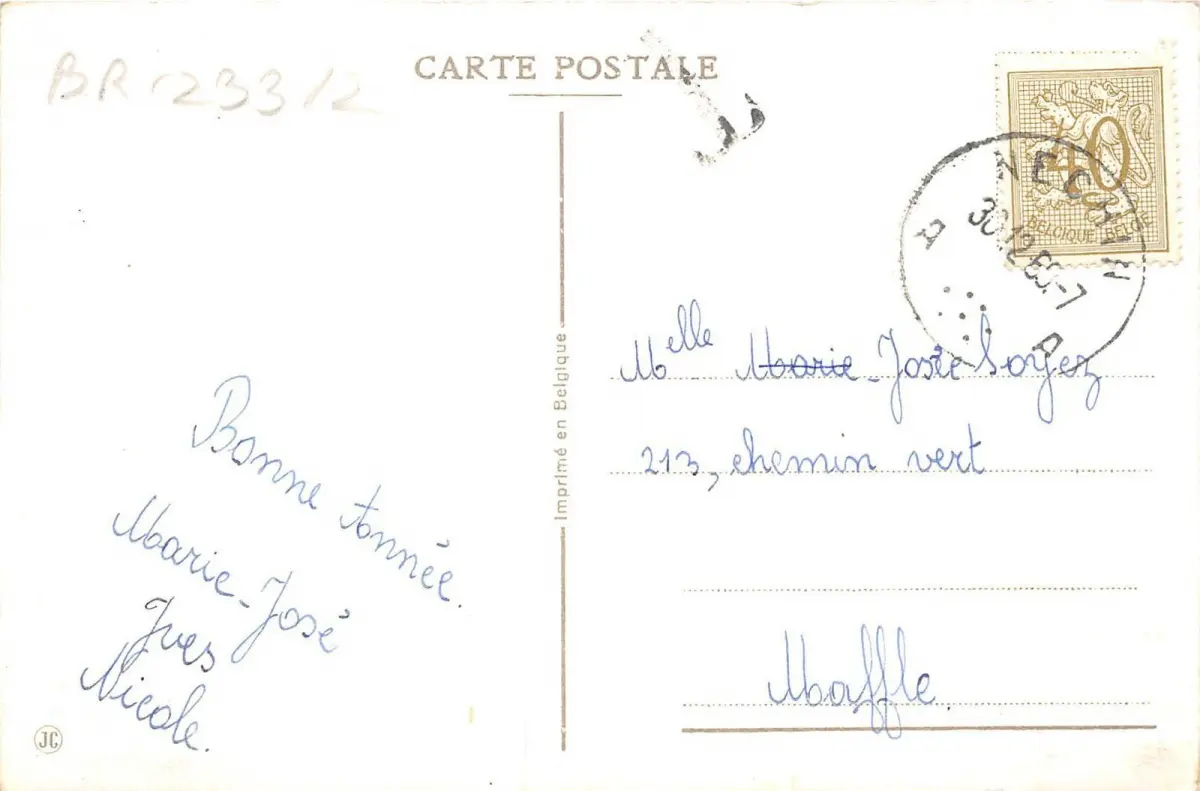 BR 233/2
CARTE POSTALE
40
BELGIQUE BELGIË
NECHIN
30.12.60.-7
A A
Melle Marie-Josée Soyez
213, chemin vert
Maffle.
Imprimé en Belgique
Bonne Année.
Marie-José
Yves
Nicole.
JC